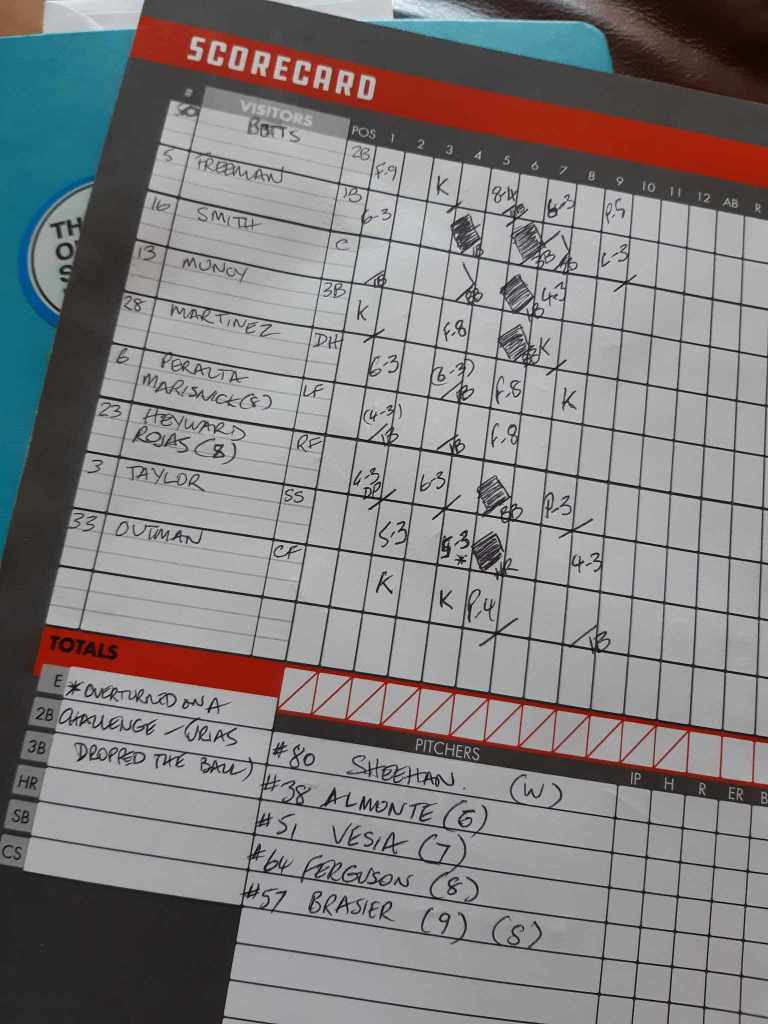 SCORECARD
# VISITORS POS 1 2 3 4 5 6 7 8 9 10 11 12 AB R
50 BETTS 2B F.9 K P.5
5 FREEMAN 1B 6-3 1B 6-3
16 SMITH C 1B BB 1B 4-3
13 MUNCY 3B K F.8 BB K
28 MARTINEZ DH 6-3 (6-3) 1B F.8 K
6 PERALTA LF (4-3) 1B 1B F.8
MARISNICK (8)
23 HEYWARD RF 4-3 DP 6-3 BB P.3
ROJAS (8)
3 TAYLOR SS 5.3 5.3 * 4-3
33 OUTMAN CF K K P.4 1B
TOTALS
E
2B
3B
HR
SB
CS
* OVERTURNED ON A
CHALLENGE - (URIAS
DROPPED THE BALL)
PITCHERS IP H R ER B
#80 SHEEHAN. (W)
#38 ALMONTE (6)
#51 VESIA (7)
#64 FERGUSON (8)
#57 BRASIER (9) (S)